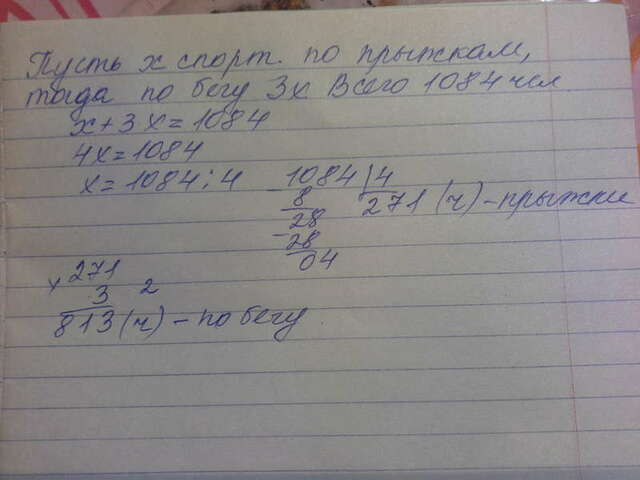 Пусть х спорт. по прыжкам,
тогда по бегу 3х Всего 1084 чел.
х + 3х = 1084
4х = 1084
х = 1084 : 4
- 1084 | 4
8 271 (ч) - прыжки
- 28
28
04
х 271
3 2
813 (ч) - по бегу.